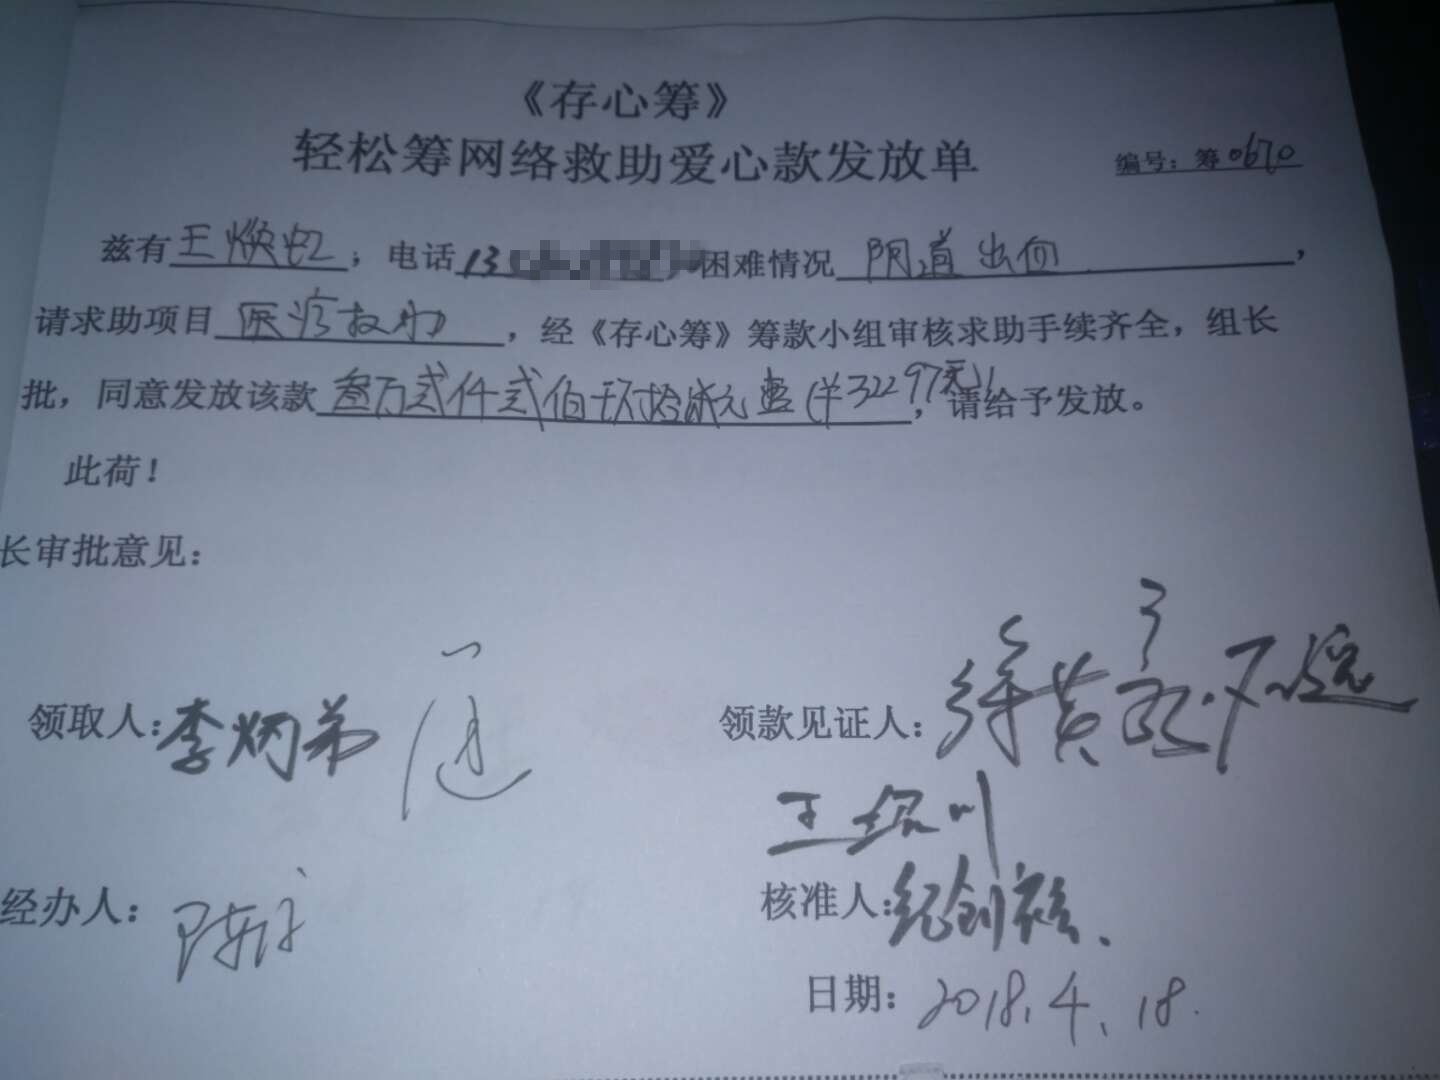 《存心筹》
轻松筹网络救助爱心款发放单
编号：筹0670
兹有王焕虹；电话13 困难情况 阴道出血，
请求助项目 医疗救助，经《存心筹》筹款小组审核求助手续齐全，组长
批，同意发放该款 叁万贰仟贰佰玖拾柒元整（￥32297元），请给予发放。
此荷！
长审批意见：
领取人：李炳弟
领款见证人：
王绍川
经办人：
核准人：纪创
日期：2018.4.18